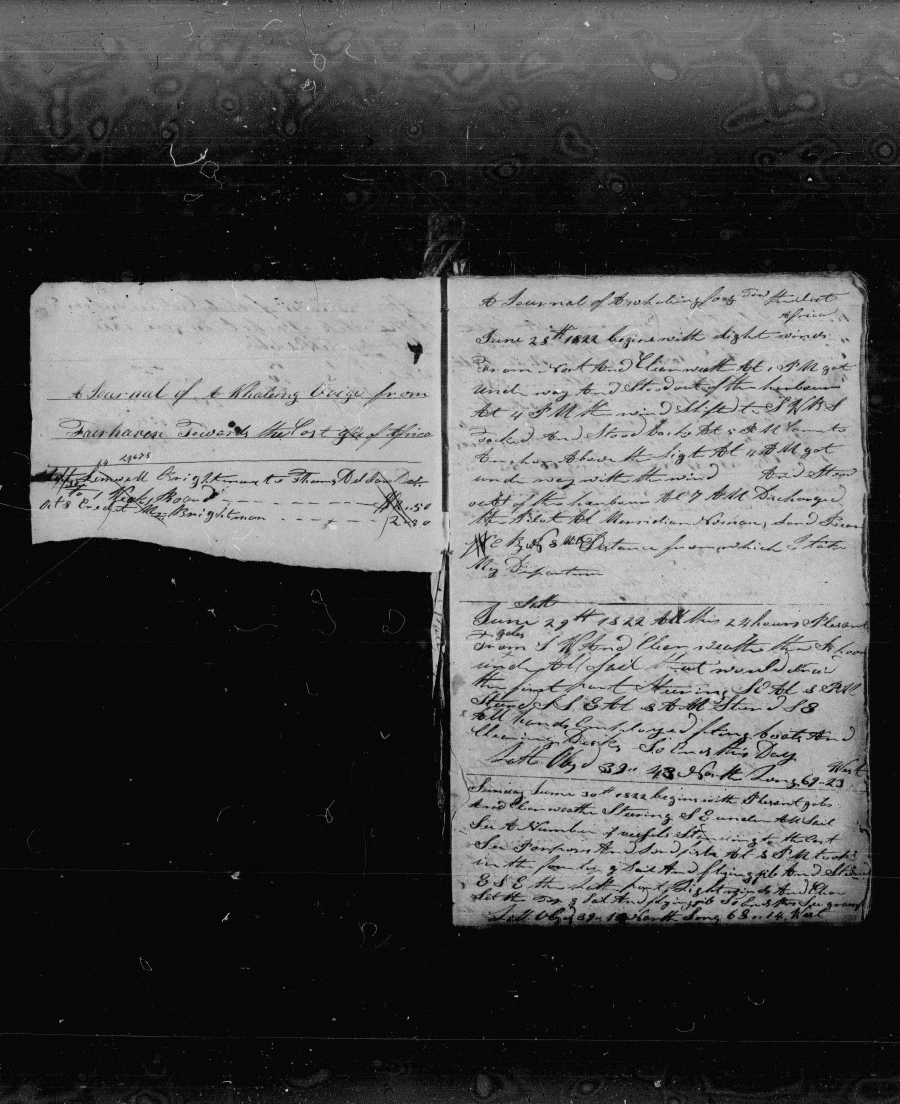 A Journal of A Whaling Voige from
Fairhaven Towards the Cost of Africa
Lemuell Brightman to Thomas Dr
to 1 Week Board - - - $2.50
Credit Mr Brightman - - - 2.50
A Journal of A whaling Voig Tow the Cost
Africa
June 28th 1822 begins with light winds
From West And Clear weath At 1 PM got
under way And Stood out of the harbour
At 4 PM the wind Shifted to S W B S
Tacked And Stood back At 5 PM Came to
Anchor Above the light At 4 AM got
under way with the wind And Stood
out of the harbour At 7 AM Discharged
the Pilot At Meridian Nomans Land Bears
Distance from which I take
My Departure
Satt
June 29th 1822 All this 24 hours Plesant
gales
From S W And Clear weather the Schooner
under All Sail that would draw
the first part Steering SE At 8 PM
Steard S S E At 8 AM Steard SE
All hands Employed fiting boats And
Cleaning Decks So Ends this Day
Latt Obsd 39,, 43 North Long 69,,23 West
Sunday June 30th 1822 begins with Plesant gals
And Clear weather Steering S E under All Sail
See A Number of vessels Steering to the Cost
See Porpoes And At 8 PM took
in the fore top g Sail And flying jib And Steard
E S E the Latt part Light winds And Clear
Set the Top g Sail And flying jib So Ends this
Latt Obsd 39,, 19 North Long 68,,14 West